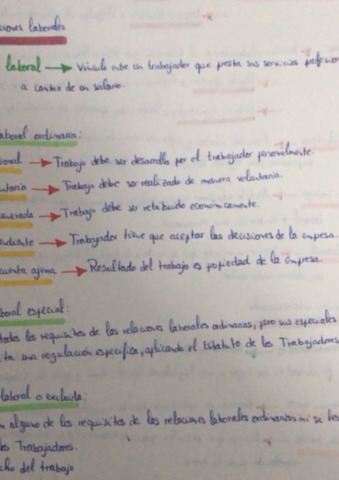 ciones laborales
laboral → Vínculo entre un trabajador que presta sus servicios profesion
a cambio de un salario.
laboral ordinaria:
sonal → Trabajo debe ser desarrollo por el trabajador personalmente.
untaria → Trabajo debe ser realizado de manera voluntaria.
→ Trabajo debe ser retribuido económicamente.
endiente → Trabajador tiene que aceptar las decisiones de la empresa.
cuenta ajena → Resultado del trabajo es propiedad de la empresa.
laboral especial:
todos los requisitos de las relaciones laborales ordinarias, pero sus especiales
ita una regulación específica, aplicando el Estatuto de los Trabajadores
laboral o excluida:
n alguno de los requisitos de las relaciones laborales ordinarias ni se
los Trabajadores.
cho del trabajo